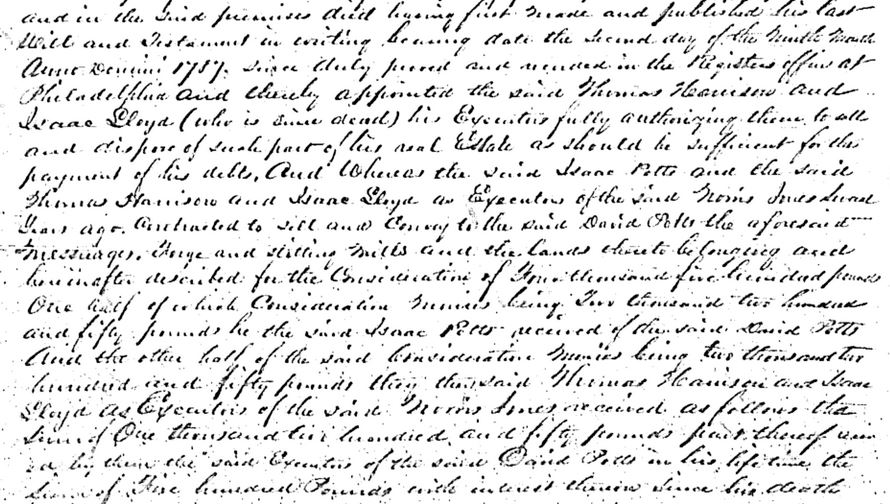 and in the said premises died having first made and published his last
Will and Testament in writing bearing date the Second day of the Ninth Month
Anno Domini 1787. since duly proved and recorded in the Registers office at
Philadelphia and thereby appointed the said Thomas Harrison and
Isaac Lloyd (who is since dead) his Executors fully authorizing them to sell
and dispose of such part of his real Estate as should be sufficient for the
payment of his debts, And Whereas the said Isaac Potts and the said
Thomas Harrison and Isaac Lloyd as Executors of the said Norris Jones
Years ago. Contracted to sell and Convey to the said David Potts the aforesaid
messuages, Forge and slitting Mills and the lands thereto belonging and
hereinafter described for the Consideration of Four thousand five hundred pounds
One half of which Consideration Monies being Two thousand two hundred
and fifty pounds he the said Isaac Potts received of the said David Potts
And the other half of the said Consideration Monies being two thousand two
hundred and fifty pounds they the said Thomas Harrison and Isaac
Lloyd as Executors of the said Norris Jones received as follows the
Sum of One thousand two hundred and fifty pounds part thereof
by them the said Executors of the said David Potts in his life time the
Sum of Five hundred Pounds with interest thereon since his death